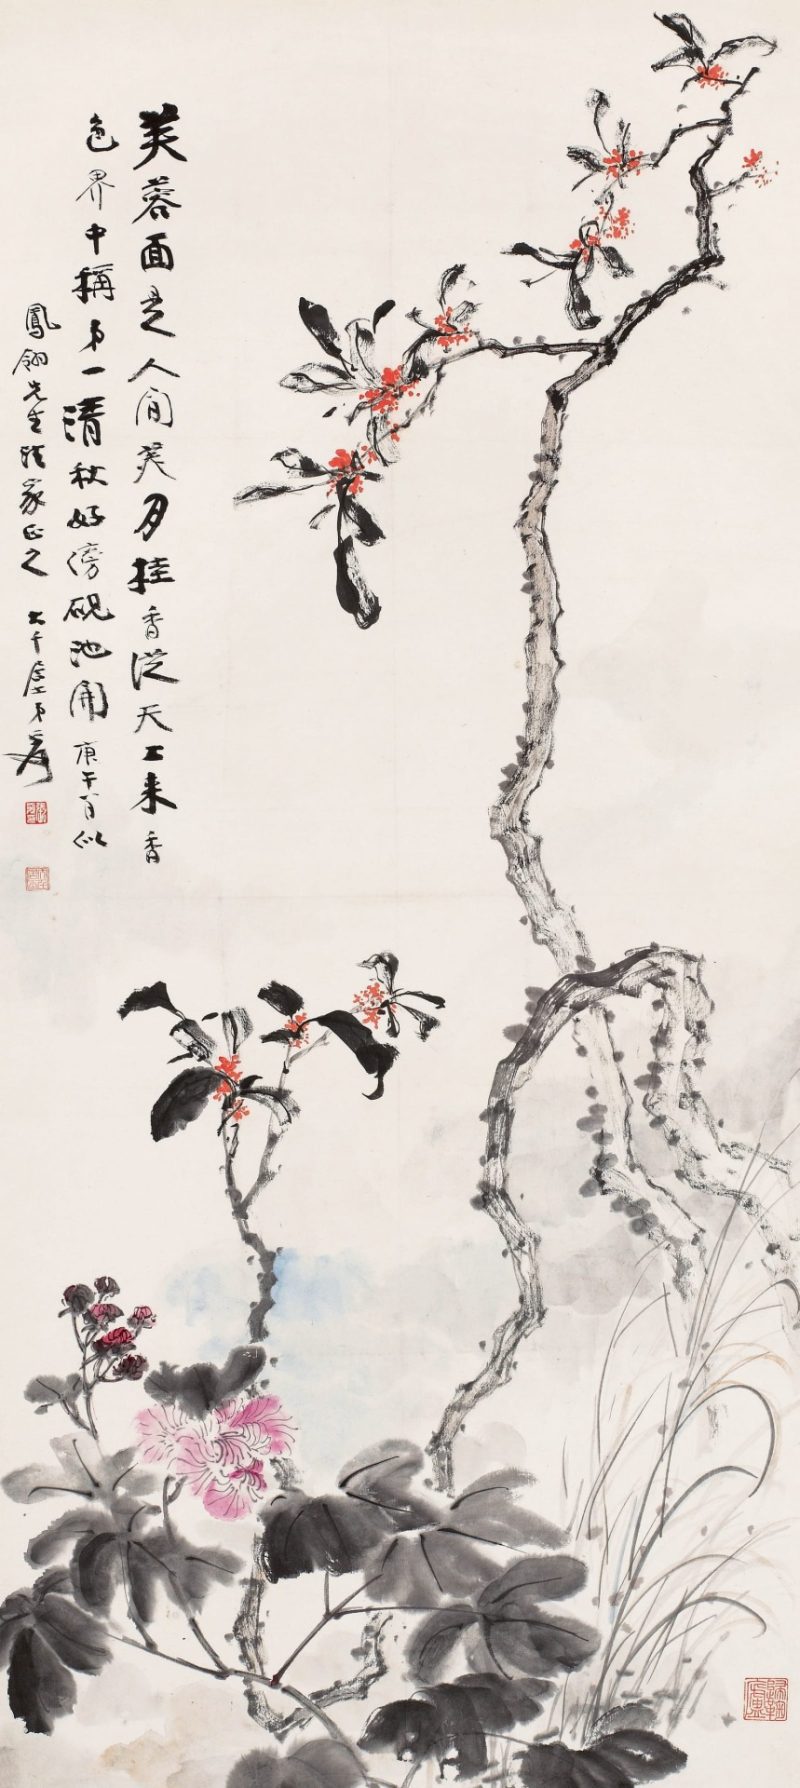 芙蓉面是人間美月桂香從天上来香
色界中稱弟一清秋好傍硯池開庚午八月似
鳳翎先生法家正之大千居士弟爰